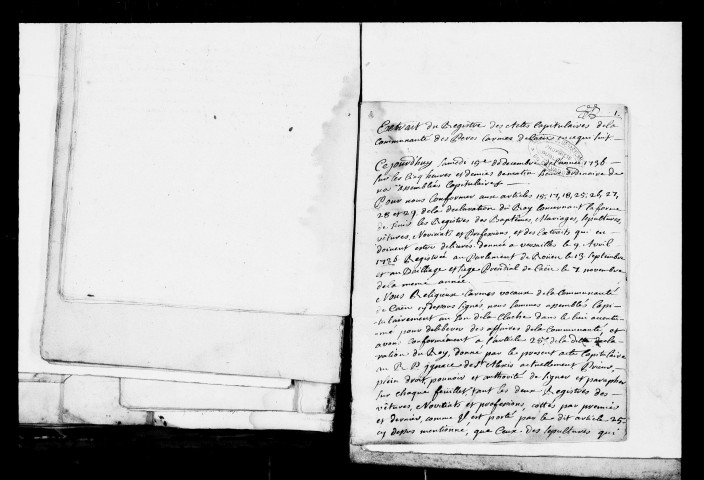 1
Extrait du Registre des Actes Capitulaires de la
Communauté des Peres Carmes de Caën en ce que suit
Cejourdhuy Samedi 15e de decembre de l'année 1736
sur les cinq heures et demie demeration heure ordinaire de
nos assemblées Capitulaires
Pour nous Conformer aux articles 15, 17, 18, 25, 26, 27,
28 et 29 de la declaration du Roy concernant la forme
de tenir les Registres des Baptêmes, Mariages, sepultures,
vêtures, Noviciats et Professions, et des Extraits qui en
doivent estre delivrés, donnée a versailles le 9 Avril
1736 Registrée au Parlement de Roüen le 13 septembre
et au Bailliage et siege Presidial de Caën le 7 novembre
de la meme année
Nous Religieux Carmes vocaux de la Communauté
de Caën cy dessous signés nous sommes assemblés Capi-
tulairement au son de la Cloche dans le lieu accoutu-
mé pour deliberer des affaires de la Communauté, et
avons conformément à l'article 25e de la dite decla-
ration du Roy, donné par le present acte Capitulaire
au R P Ignace de St Alexis actuellement Prieur,
plein droit pouvoir et authorité de signer et parapher
sur chaque feuillet tant les deux Registres des
vêtures, Noviciats et professions, cottés par premier
et dernier, comme Il est porté par le dit article 25
cy dessus mentionné, que Ceux des sepultures qui